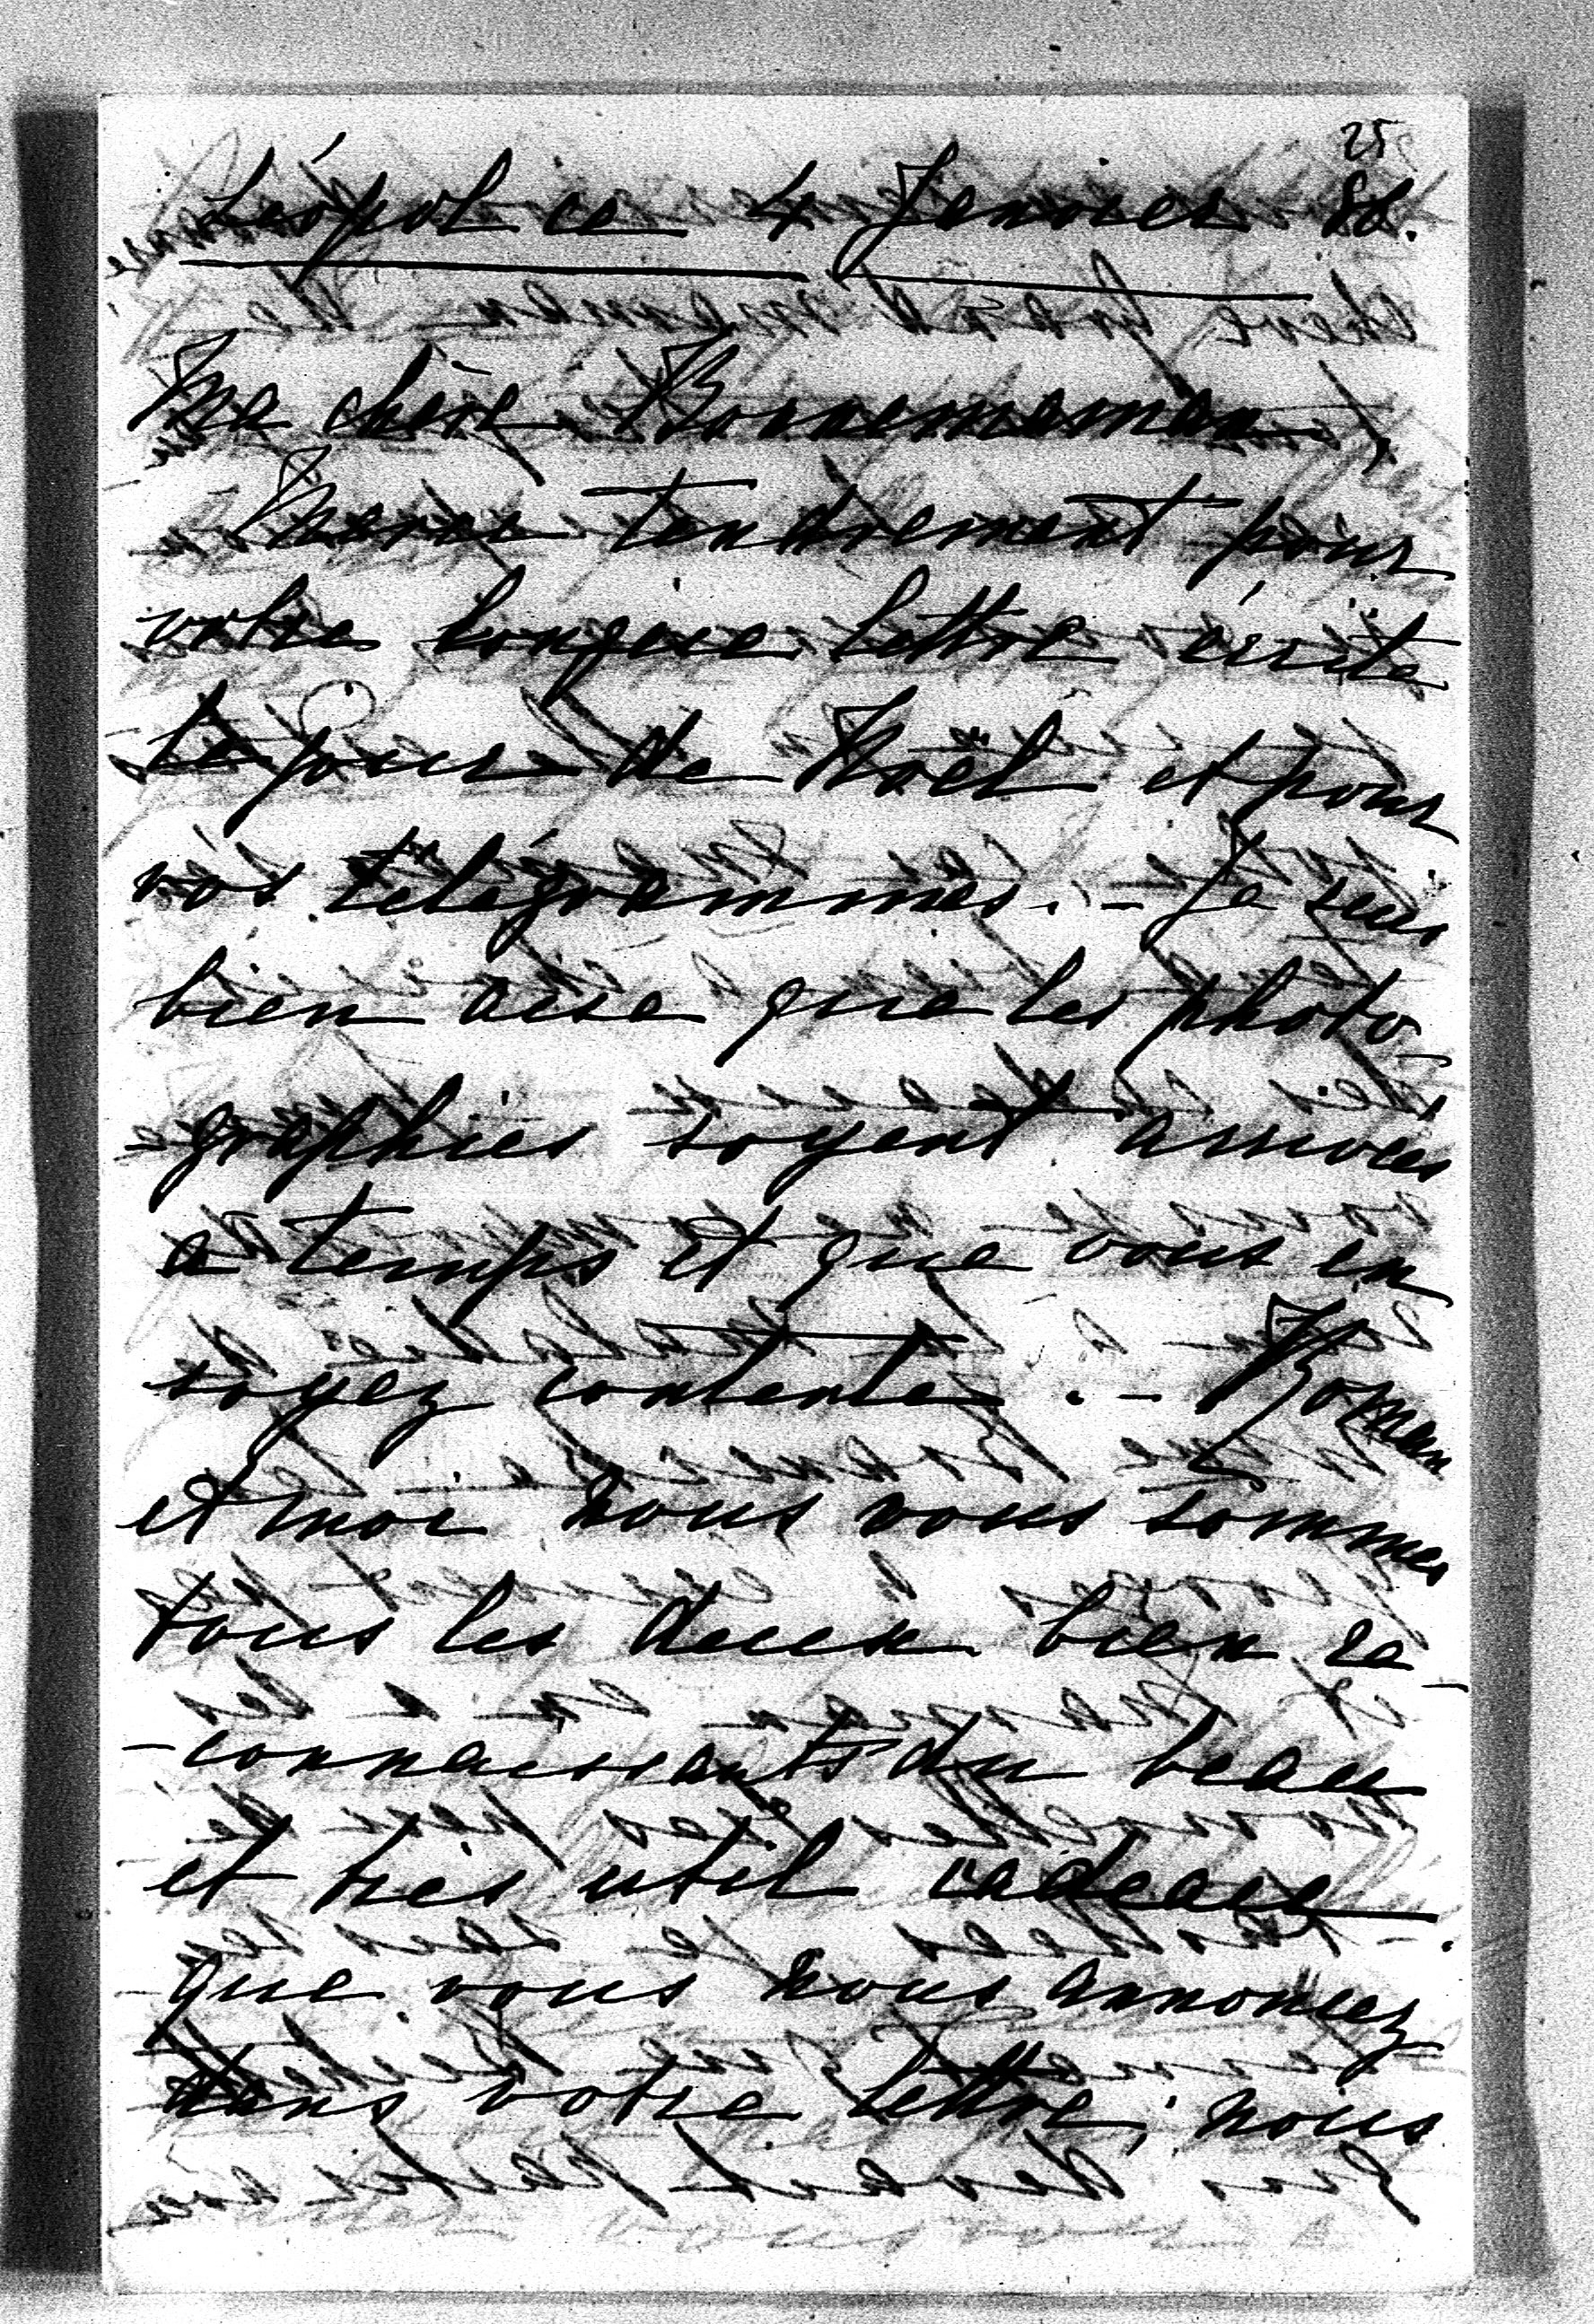 25
Léopol ce 4 Janvier 88.
Ma chère Bonnemaman,
Merci tendrement pour
votre longue lettre écrite
le jour de Noël et pour
vos télégrammes. - Je suis
bien aise que les photo-
-graphies soyent arrivées
a temps et que vous en
soyez contente. - Roman
et moi nous vous sommes
tous les deux bien re-
-connaissants du beau
et très util cadeau
que vous nous annoncez
dans votre lettre; nous